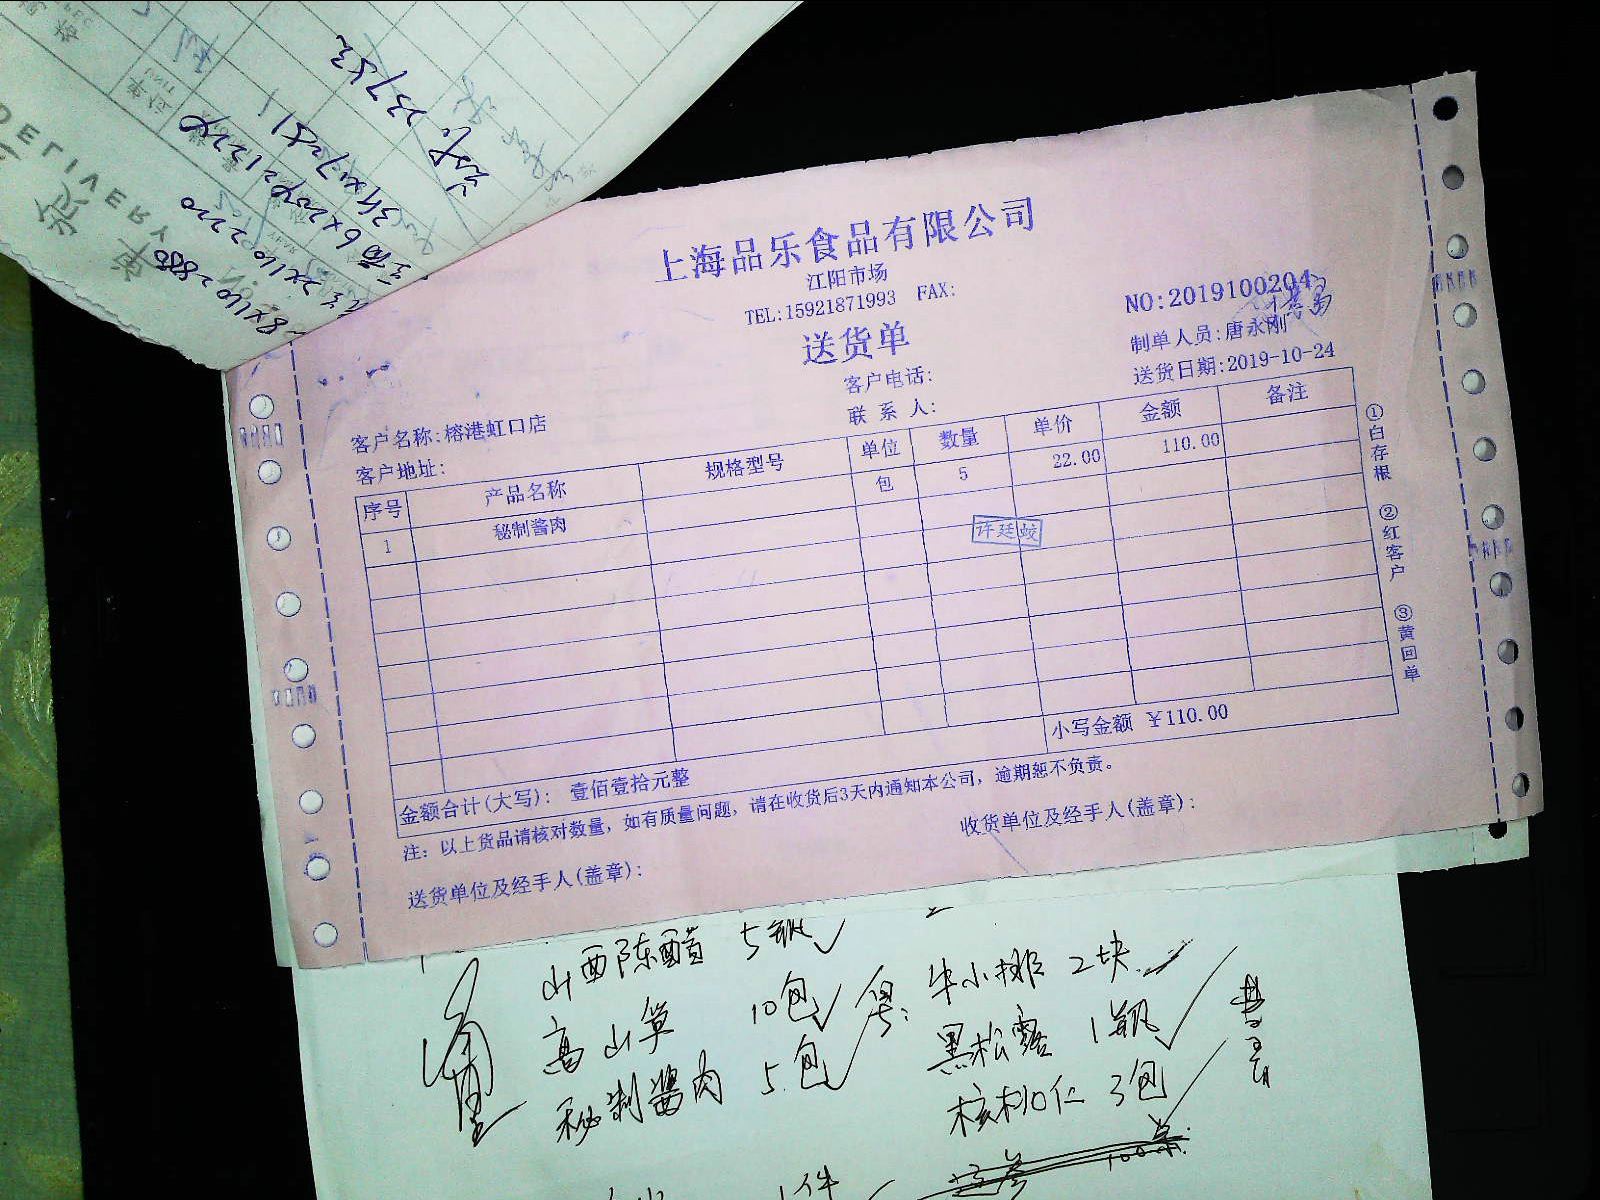 DELIVERY
上海品乐食品有限公司
江阳市场
TEL:15921871993 FAX:
送货单
NO:2019100204
制单人员:唐永刚
送货日期:2019-10-24
客户电话:
联 系 人:
客户名称:榕港虹口店
客户地址:
序号 产品名称 规格型号 单位 数量 单价 金额 备注
1 秘制酱肉 包 5 22.00 110.00
许廷蛟
小写金额 ￥110.00
金额合计(大写): 壹佰壹拾元整
注: 以上货品请核对数量, 如有质量问题, 请在收货后3天内通知本公司, 逾期恕不负责。
送货单位及经手人(盖章):
收货单位及经手人(盖章):
①白存根 ②红客户 ③黄回单
山西陈醋 5瓶
高山笋 10包
秘制酱肉 5包
牛小排 2块
黑松露 1瓶
核桃仁 3包
1件